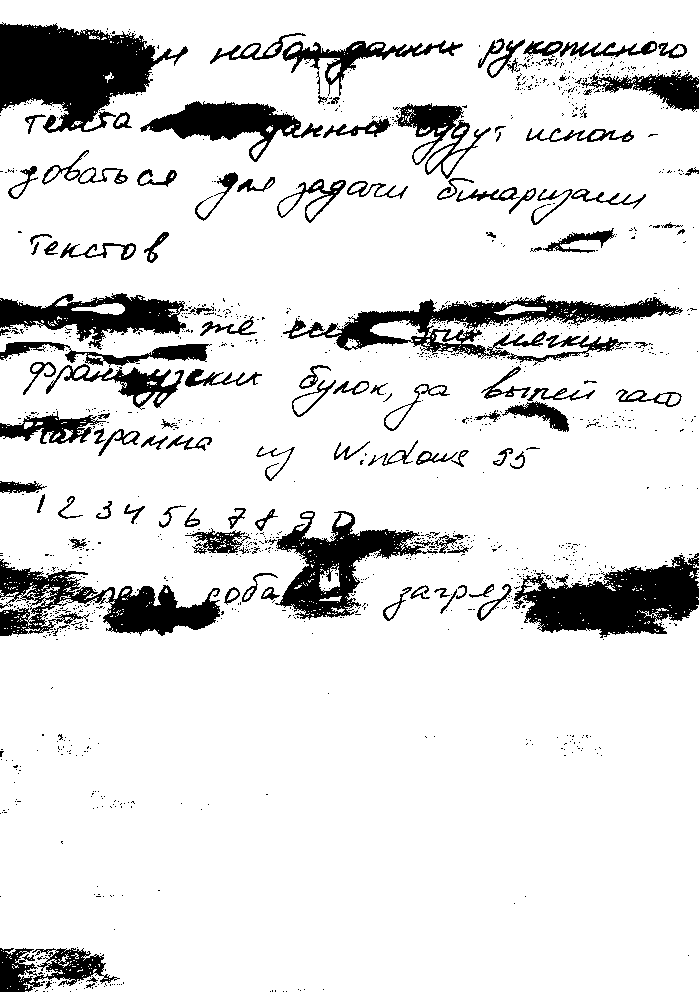 набор данных рукописного
текста данные будут исполь-
доваться для задачи бинаризации
текстов
же ещё этих мягких
французских булок, да выпей чаю
Панграмма из Windows 95
1 2 3 4 5 6 7 8 9 0
Теперь